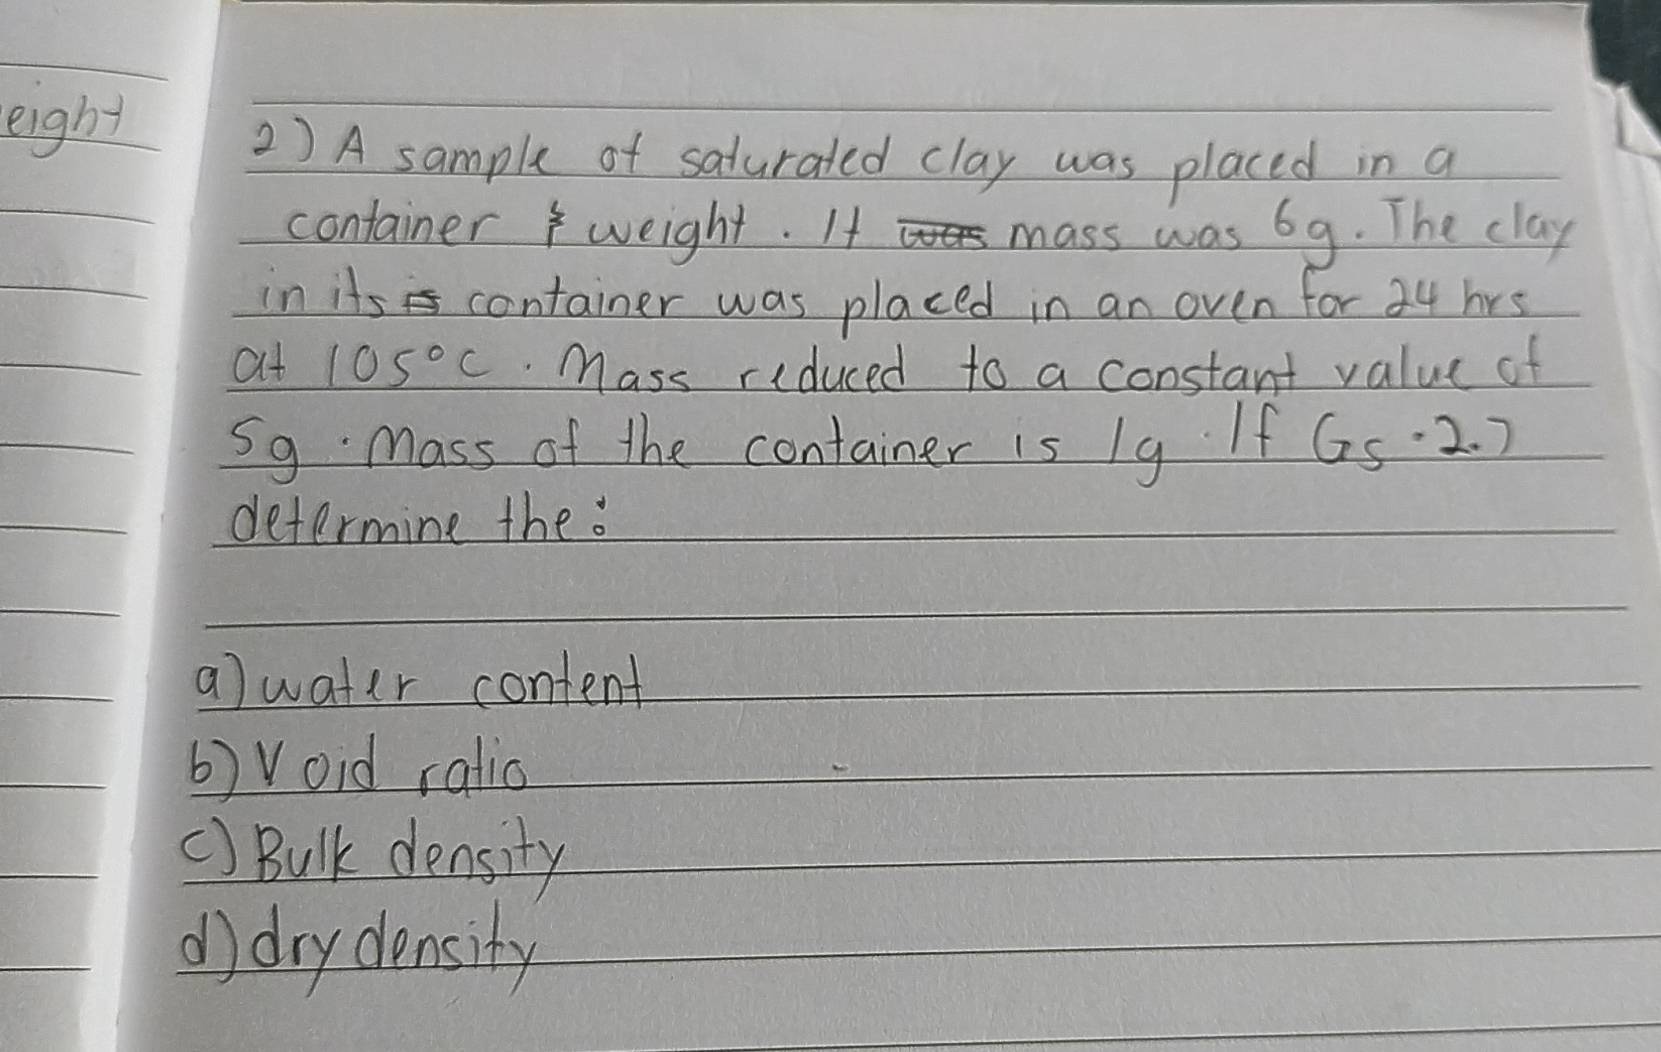 eight
2) A sample of saturated clay was placed in a
container & weight. It was mass was 6g. The clay
in its is container was placed in an oven for 24 hrs
at 105°C. Mass reduced to a constant value of
5g. Mass of the container is 1g. If Gs · 2.7
determine the:
a) water content
b) Void ratio
c) Bulk density
d) dry density